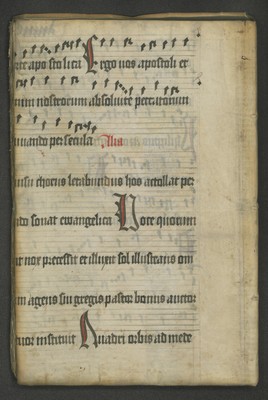 apostolica Ergo uos apostoli et
num nostrorum absoluite peccatorum
uuando per secula Alia
chorus letabundus hos attollat per
sonat ewangelica Uore quorum
ut nox precessit et illuxit sol illustrans om
m agens sui gregis pastor bonus auctor
tuor instituit Quadri orbis ad mede